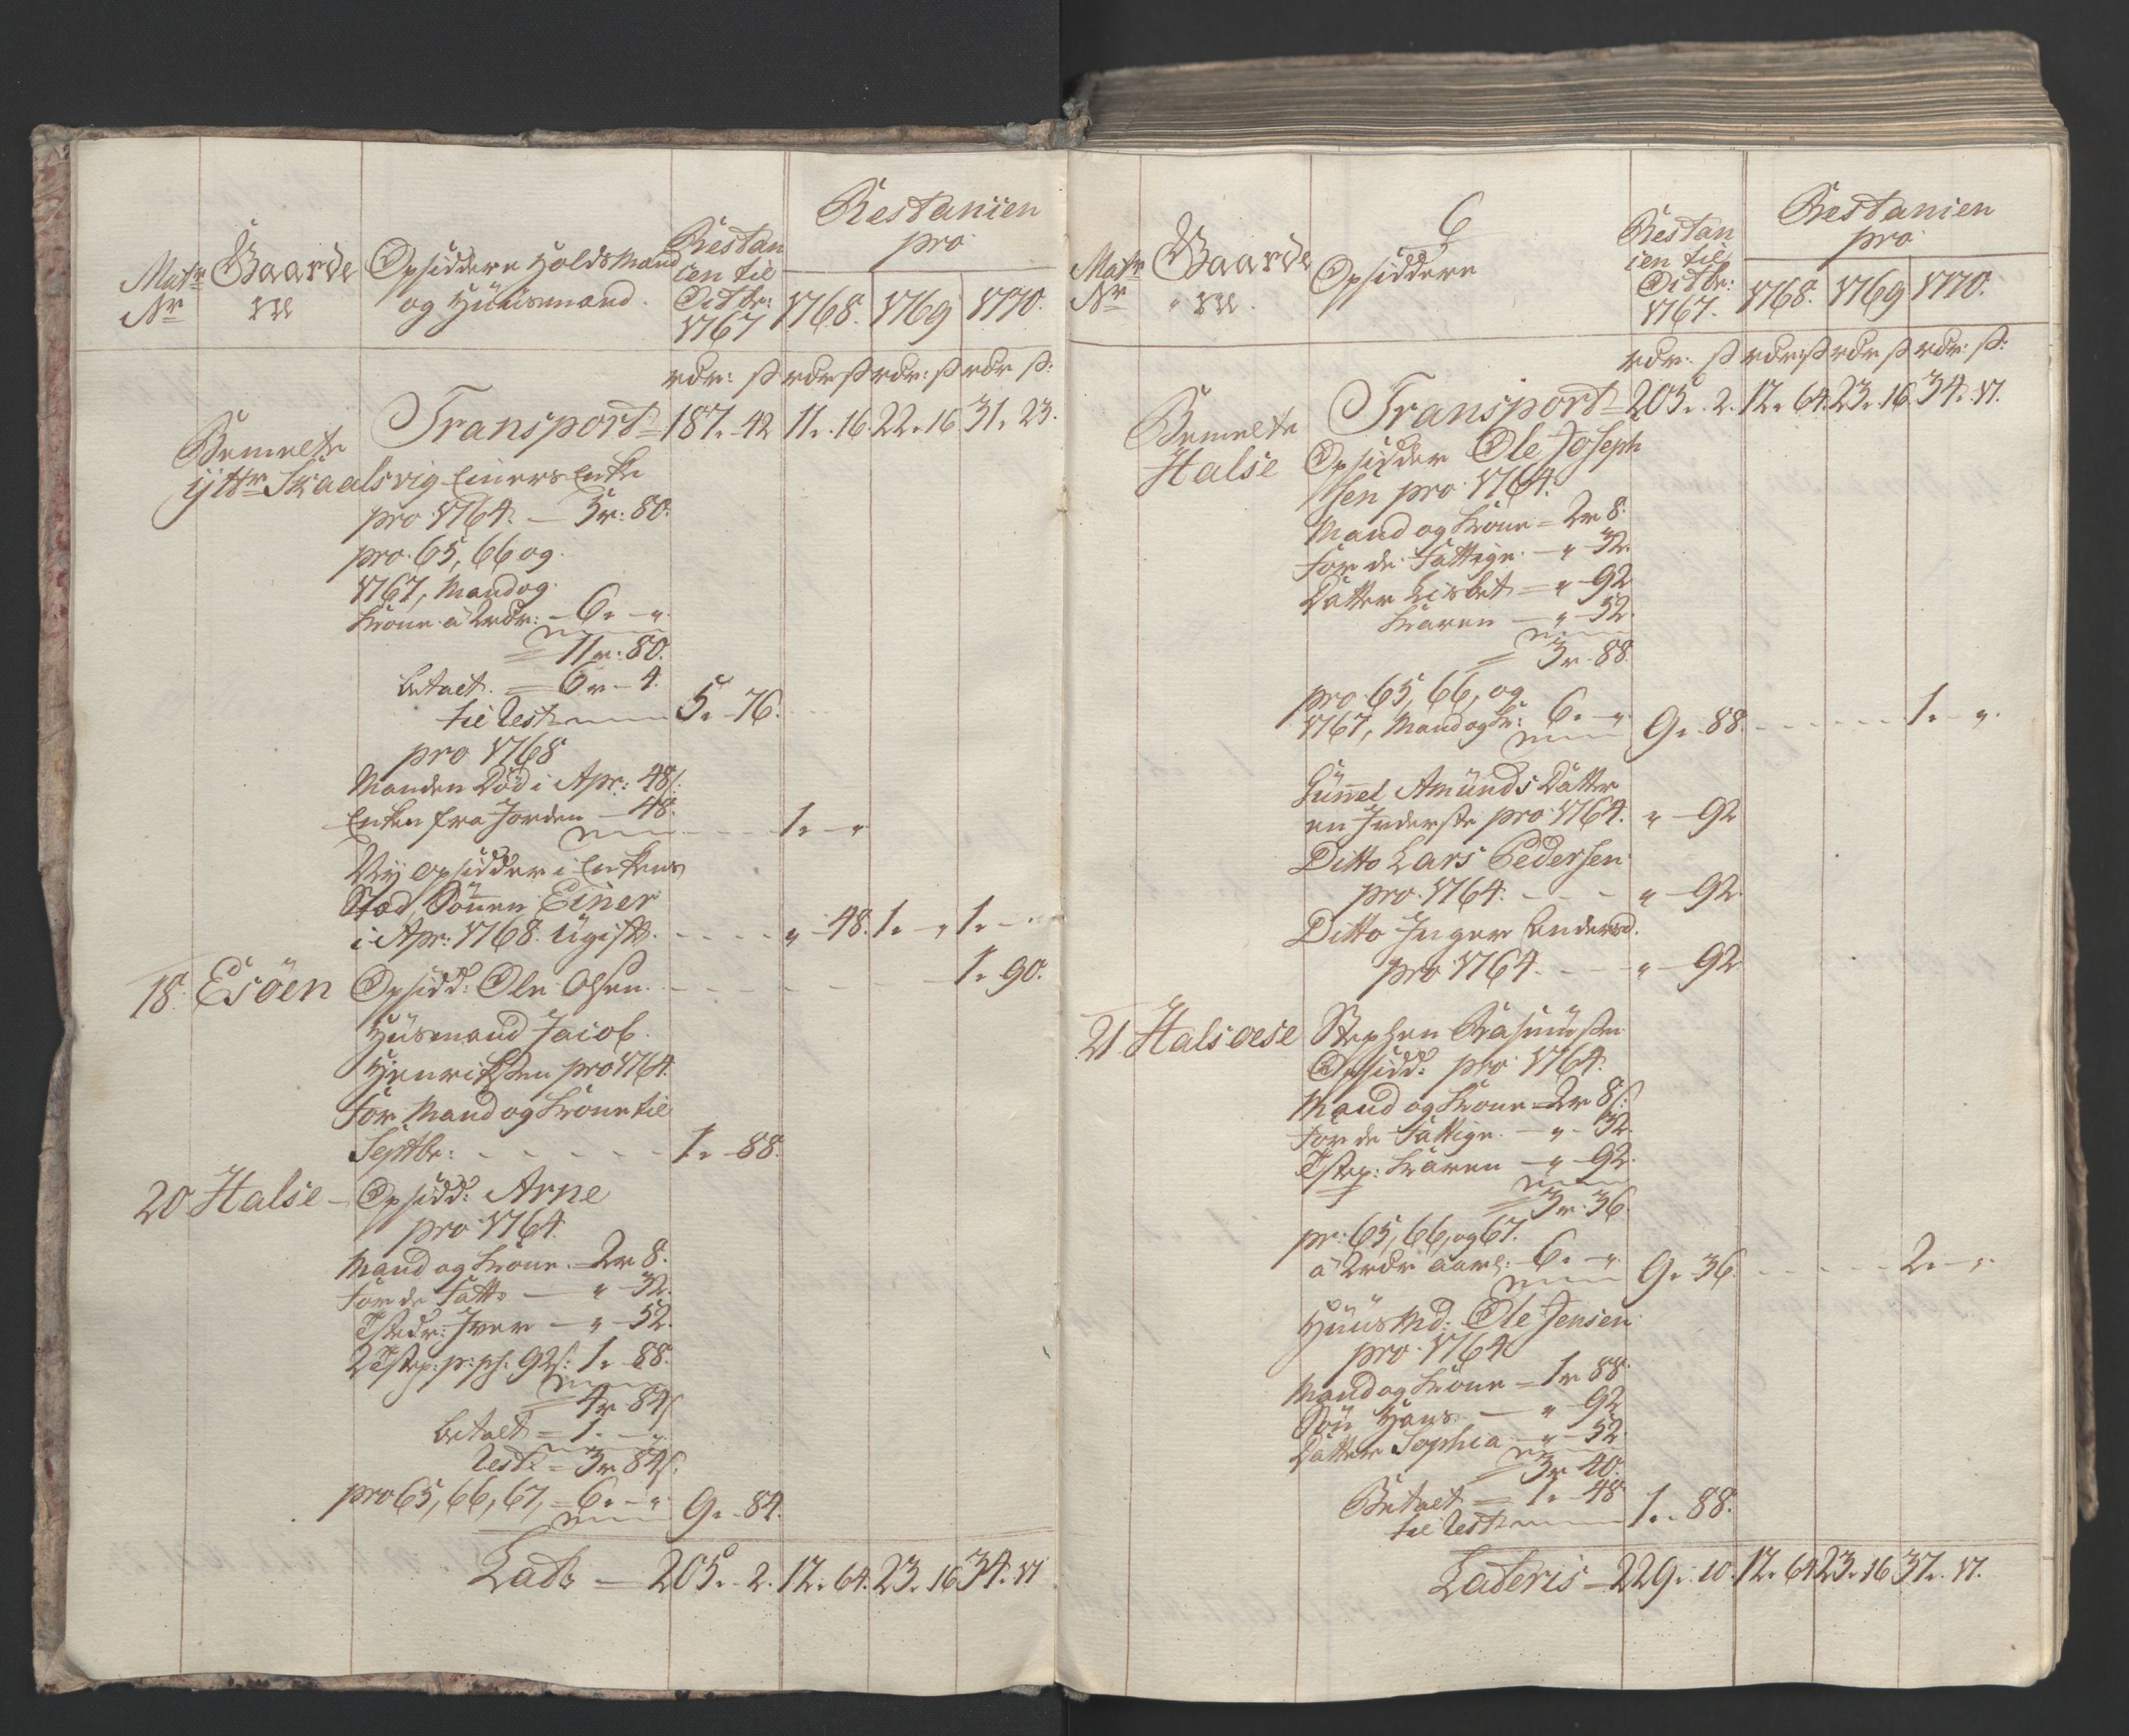 Restanien
pro
Matr Gaarde Opsiddere Holdsmænd Restan
Nr og Huusmænd. ien til
Octbr:
ne 1767 1768. 1769 1770.
rdr: ß rdr ß rdr: ß rdr ß:
Transport = 187.-42 11.-16. 22.-16 31.-23.
Bemelte
ytr Skaalsvig Einers Enke
pro 1764. — 5r: 80.
pro. 65, 66 og
1767, Mand og
Kone a 2rdr: - 6.-„.
= 11r: 80.
betalt. = 6r - 4.
til Rest 5.-76.
pro 1768
Manden Død i Apr: 48ß:
Enken fra Jorden — 48. 1.-„
Ny Opsidder i Enkens
Stæd, Sønnen Einer
i Apr: 1768. Ugift. - - - - „-48. 1.-„ 1.-„
18. Esöen Opsidd: Ole Olsen. - - - - 1.90.
Huusmand Jacob
Henriksen pro 1764.
for Mand og Kone til
Septbr: - - - - - 1.-88.
20 Halse - Opsidd: Arne
pro 1764.
Mand og Kone. - 2r 8.
for de Fatt: — „-32.
Tstedr: Iver — „-52.
2 Tstep: p: ps: 92ß: 1.-88.
= 4r 84ß
betalt = 1.-„.
Rest = 3r 84ß.
pro 65, 66, 67, = 6.-„. 9.-84.
Lats — 205.-2. 12.-64. 23.-16 34.-17
6
Restanien
pro
Matr Gaarde Opsiddere Restan
Nr ne. ien til
Octbr:
1767. 1768. 1769 1770.
rdr: ß rdr: ß rdr ß rdr: ß:
Transport = 205.-2. 12.-64. 23.-16. 34.-17.
Bemelte
Halse Opsidder Ole Joseph
sen pro 1764.
Mand og Kone = 2r 8.
for de Fattige. — „-32.
Datter Lisbet = „-92
Karen — „-52.
= 3r. 88.
pro 65, 66, og
1767, Mand og K: 6.-„. 9.-88. - - - - 1.-„.
Gunnel Amunds Datter
en Inderste pro 1764. „-92
Ditto Lars Pedersen
pro. 1764. - - - „-92.
Ditto Inger Andersd.
pro 1764. - - - „-92
21 Halsoese Stephen Rasmussen
Opsidd: pro 1764.
Mand og Kone = 2r 8ß:
for de Fattige. — „-32.
Tstep: Karen — „-92.
= 3r 36.
pr: 65, 66, og 67.
a 2rdr aarl: - 6.-„. 9.-36. - - - - 2.-„.
Huus Md: Ole Jensen
pro. 1764
Mand og Kone = 1r 88.
Søn Hans. — „-92
Datter Sophia — „-52.
= 3r 40.
Betalt = 1.-48
til Rest 1.-88.
Lateris = 229.-10. 12.-64 23.-16 37.-17.